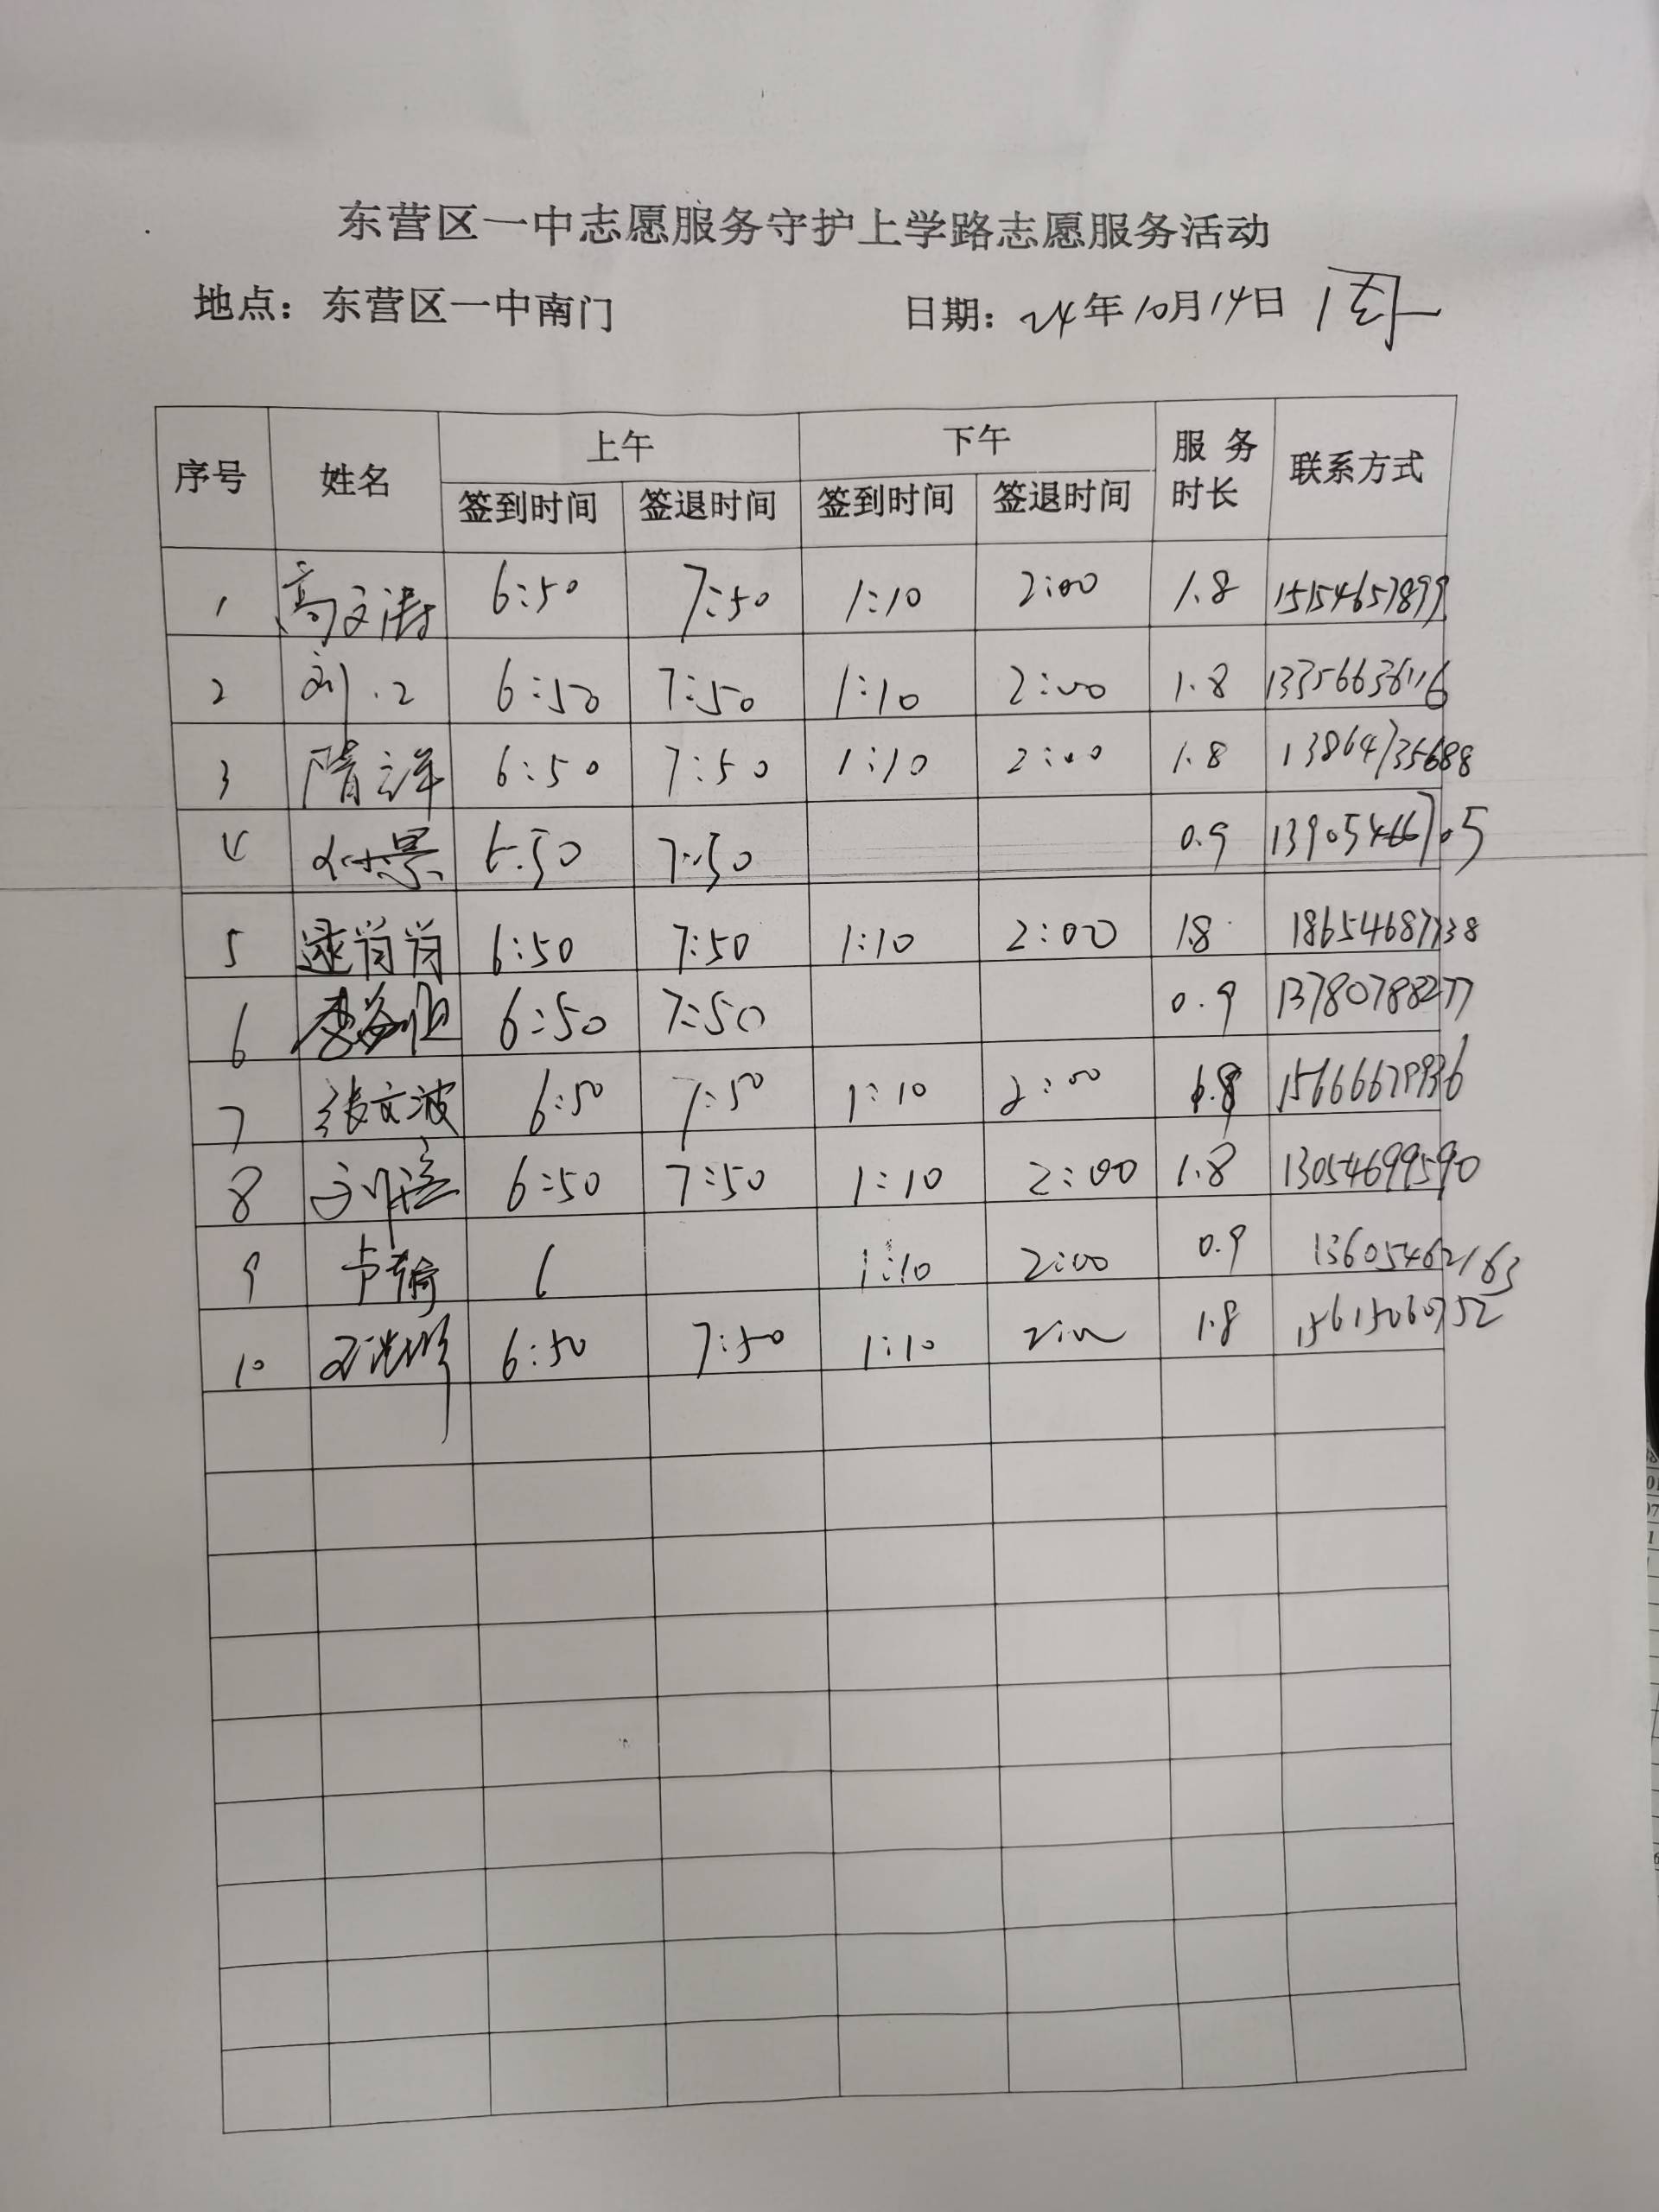 东营区一中志愿服务守护上学路志愿服务活动
地点：东营区一中南门 日期：24年10月14日
序号 姓名 上午 下午 服务时长 联系方式
签到时间 签退时间 签到时间 签退时间
1 高文涛 6:50 7:50 1:10 2:00 1.8 15154657899
2 刘 6:50 7:50 1:10 2:00 1.8 13356636116
3 隋 6:50 7:50 1:10 2:00 1.8 13864735688
4 6:50 7:50 0.9 13905466705
5 逯肖肖 6:50 7:50 1:10 2:00 1.8 18654687738
6 李海 6:50 7:50 0.9 13780788277
7 张文波 6:50 7:50 1:10 2:00 1.8 15666679936
8 刘 6:50 7:50 1:10 2:00 1.8 13054699590
9 卢 1:10 2:00 0.9 13605462163
10 6:50 7:50 1:10 2:00 1.8 15615060752